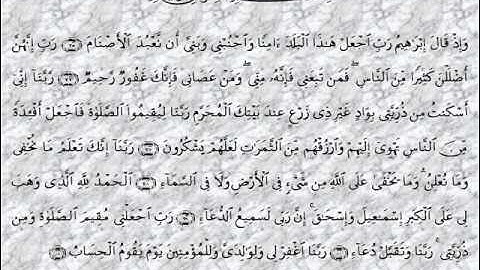 وَإِذْ قَالَ إِبْرَٰهِيمُ رَبِّ ٱجْعَلْ هَٰذَا ٱلْبَلَدَ ءَامِنًا وَٱجْنُبْنِى وَبَنِىَّ أَن نَّعْبُدَ ٱلْأَصْنَامَ ﴿٣٥﴾ رَبِّ إِنَّهُنَّ
أَضْلَلْنَ كَثِيرًا مِّنَ ٱلنَّاسِ ۖ فَمَن تَبِعَنِى فَإِنَّهُۥ مِنِّى ۖ وَمَنْ عَصَانِى فَإِنَّكَ غَفُورٌ رَّحِيمٌ ﴿٣٦﴾ رَّبَّنَآ إِنِّىٓ
أَسْكَنتُ مِن ذُرِّيَّتِى بِوَادٍ غَيْرِ ذِى زَرْعٍ عِندَ بَيْتِكَ ٱلْمُحَرَّمِ رَبَّنَا لِيُقِيمُوا۟ ٱلصَّلَوٰةَ فَٱجْعَلْ أَفْـِٔدَةً
مِّنَ ٱلنَّاسِ تَهْوِىٓ إِلَيْهِمْ وَٱرْزُقْهُم مِّنَ ٱلثَّمَرَٰتِ لَعَلَّهُمْ يَشْكُرُونَ ﴿٣٧﴾ رَبَّنَآ إِنَّكَ تَعْلَمُ مَا نُخْفِى
وَمَا نُعْلِنُ ۗ وَمَا يَخْفَىٰ عَلَى ٱللَّهِ مِن شَىْءٍ فِى ٱلْأَرْضِ وَلَا فِى ٱلسَّمَآءِ ﴿٣٨﴾ ٱلْحَمْدُ لِلَّهِ ٱلَّذِى وَهَبَ
لِى عَلَى ٱلْكِبَرِ إِسْمَٰعِيلَ وَإِسْحَٰقَ ۚ إِنَّ رَبِّى لَسَمِيعُ ٱلدُّعَآءِ ﴿٣٩﴾ رَبِّ ٱجْعَلْنِى مُقِيمَ ٱلصَّلَوٰةِ وَمِن
ذُرِّيَّتِى ۚ رَبَّنَا وَتَقَبَّلْ دُعَآءِ ﴿٤٠﴾ رَبَّنَا ٱغْفِرْ لِى وَلِوَٰلِدَىَّ وَلِلْمُؤْمِنِينَ يَوْمَ يَقُومُ ٱلْحِسَابُ ﴿٤١﴾